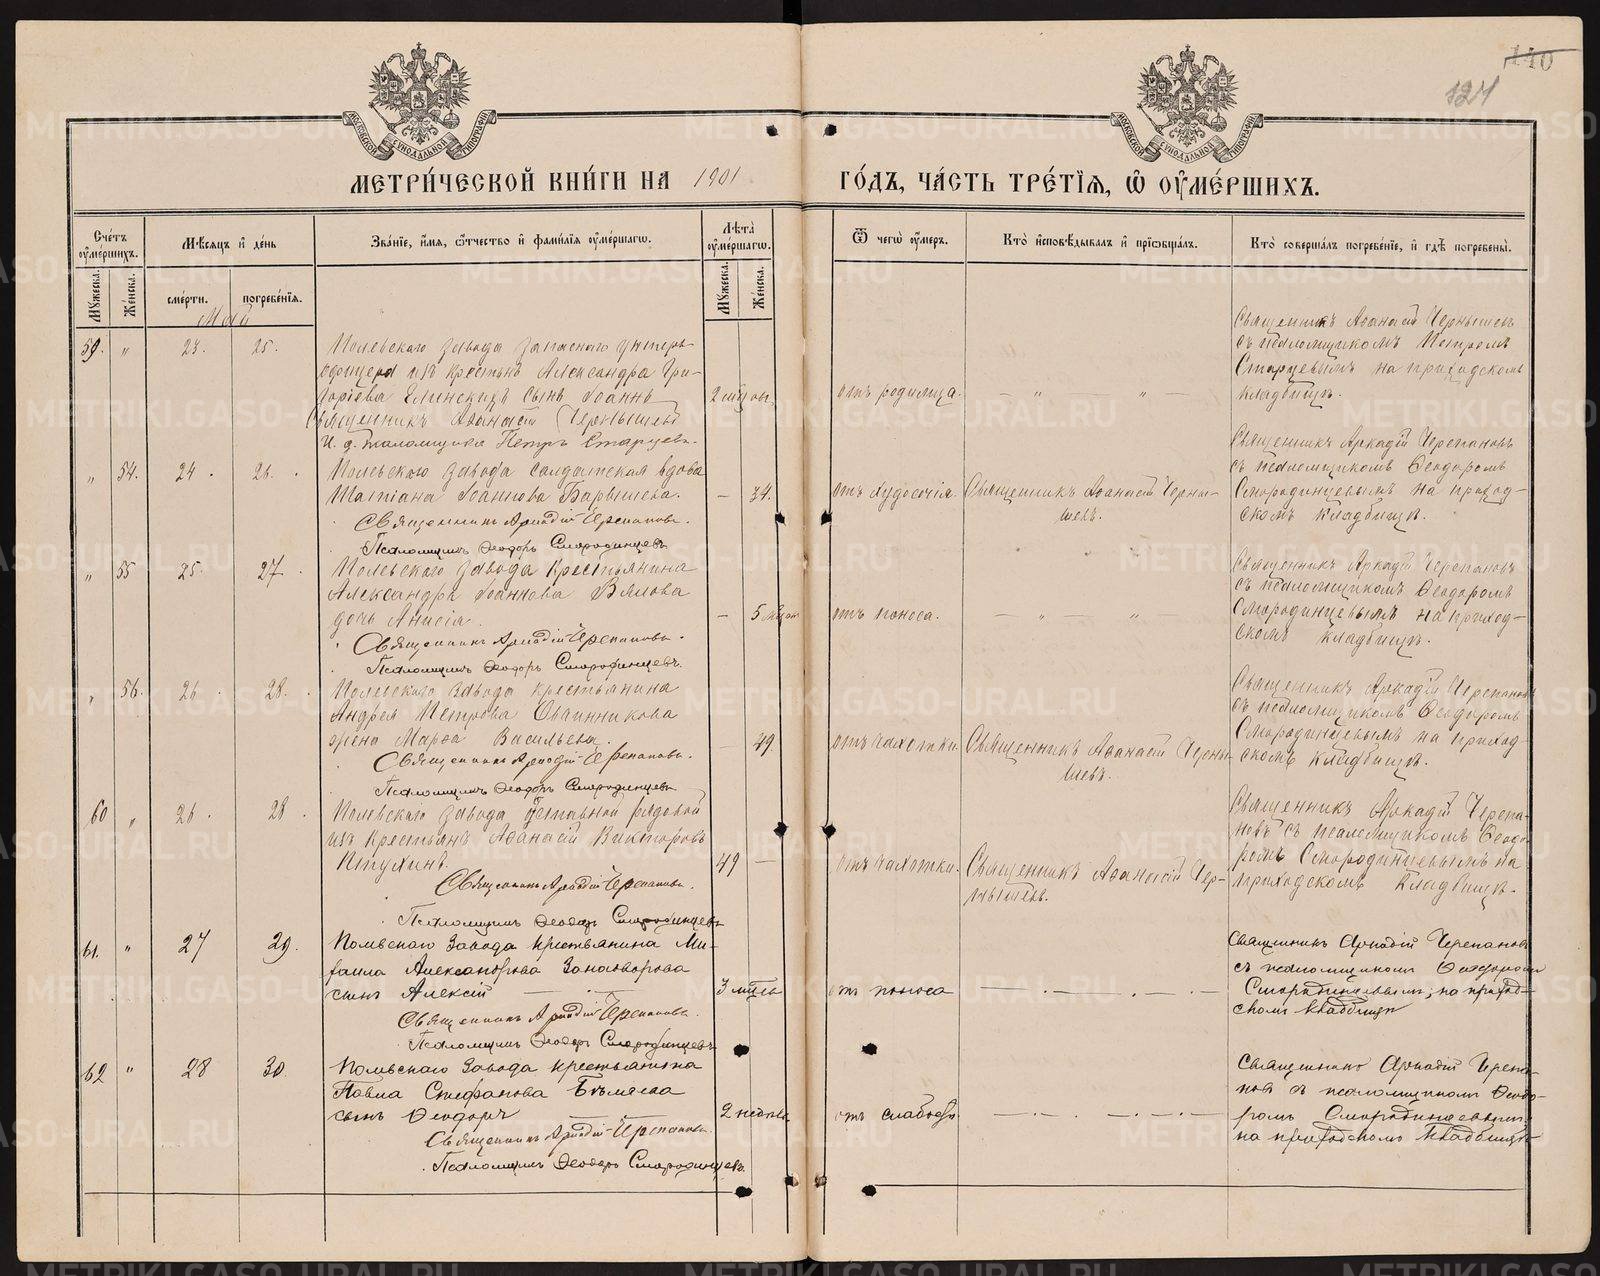 140
124
МОСКОВСКОЙ СѴНОДАЛЬНОЙ ТИПОГРАФІИ
МОСКОВСКОЙ СѴНОДАЛЬНОЙ ТИПОГРАФІИ
МЕТРИ́ЧЕСКОЙ КНИ́ГИ НА 1901 ГО́ДЪ, ЧА́СТЬ ТРЕ́ТІѦ, Ѡ҆ ОУ҆МЕ́РШИХЪ.
Сче́тъ оу҆ме́ршихъ.
Мꙋ́жеска. Же́нска.
Мѣ́сѧцъ и҆ де́нь
сме́рти. погребе́нїѧ.
Зва́нїе, и҆́мѧ, ѻ҆́тчество и҆ фами́лїѧ оу҆ме́ршагѡ.
Лѣ́та оу҆ме́ршагѡ.
Мꙋ́жеска. Же́нска.
Ѿ чегѡ̀ оу҆́меръ.
Кто̀ и҆сповѣ́дывалъ и҆ прїѡбща́лъ.
Кто̀ соверша́лъ погребе́нїе, и҆ гдѣ̀ погребены̀.
Май
59. " 23. 25.
Полевскаго завода запаснаго унтеръ
офицера изъ крестьянъ Александра Гри-
горіева Елинскихъ сынъ Іоаннъ
Священникъ Аѳанасій Чернышевъ
И. д. псаломщика Петръ Старцевъ.
2 мѣс.
отъ родимца.
— " — " —
Священникъ Аѳанасій Чернышевъ
съ псаломщикомъ Петромъ
Старцевымъ на приходскомъ
кладбищѣ.
" 54. 24. 26.
Полевскаго завода солдатская вдова
Татіана Іоаннова Барышева.
Священникъ Аркадій Черепановъ.
Псаломщикъ Ѳеодоръ Смородинцевъ
— 34.
отъ худосочія.
Священникъ Аѳанасій Черны-
шевъ.
Священникъ Аркадій Черепановъ
съ псаломщикомъ Ѳеодоромъ
Смородинцевымъ на приход-
скомъ кладбищѣ.
" 55 25. 27.
Полевскаго завода крестьянина
Александра Іоаннова Вялова
дочь Анисія.
Священникъ Аркадій Черепановъ.
Псаломщикъ Ѳеодоръ Смородинцевъ.
— 5
отъ поноса.
— " — " —
Священникъ Аркадій Черепановъ
съ псаломщикомъ Ѳеодоромъ
Смородинцевымъ на приход-
скомъ кладбищѣ.
" 56. 26. 28.
Полевскаго завода крестьянина
Андрея Петрова Овчинникова
жена Марѳа Васильева.
Священникъ Аркадій Черепановъ.
Псаломщикъ Ѳеодоръ Смородинцевъ
— 49.
отъ чахотки.
Священникъ Аѳанасій Черны-
шевъ.
Священникъ Аркадій Черепановъ
съ псаломщикомъ Ѳеодоромъ
Смородинцевымъ на приход-
скомъ кладбищѣ.
60 " 26. 28.
Полевскаго завода отставной рядовой
изъ крестьянъ Аѳанасій Викторовъ
Птухинъ.
Священникъ Аркадій Черепановъ.
Псаломщикъ Ѳеодоръ Смородинцевъ
49 —
отъ чахотки.
Священникъ Аѳанасій Чер-
нышевъ.
Священникъ Аркадій Черепа-
новъ съ псаломщикомъ Ѳеодо-
ромъ Смородинцевымъ на
приходскомъ кладбищѣ.
61. " 27 29.
Полевскаго завода крестьянина Ми-
хаила Александрова Заговорова
сынъ Алексій
Священникъ Аркадій Черепановъ.
Псаломщикъ Ѳеодоръ Смородинцевъ
3 мѣсяца
отъ поноса
Священникъ Аркадій Черепановъ
съ псаломщикомъ Ѳеодоромъ
Смородинцевымъ; на приход-
скомъ кладбищѣ
62 " 28 30.
Полевскаго завода крестьянина
Павла Стефанова Бѣляева
сынъ Ѳеодоръ
Священникъ Аркадій Черепановъ.
Псаломщикъ Ѳеодоръ Смородинцевъ.
2 недѣли
отъ слабости
Священникъ Аркадій Черепа-
новъ съ псаломщикомъ Ѳеодо-
ромъ Смородинцевымъ
на приходскомъ кладбищѣ
METRIKI.GASO-URAL.RU